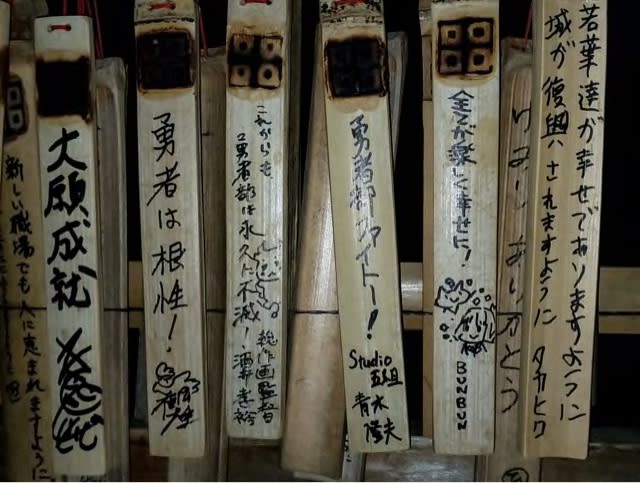 若葉達が幸せでありますように
城が復興されますように タカヒロ
ありがとう
全てが楽しく幸せに!
BUNBUN
勇者部ファイトー!
Studio
五組
青木
隆夫
これからも
勇者部は永久に不滅!
総作画監督
酒井孝裕
勇者は根性!
大願成就
新しい職場でも人に恵まれますように